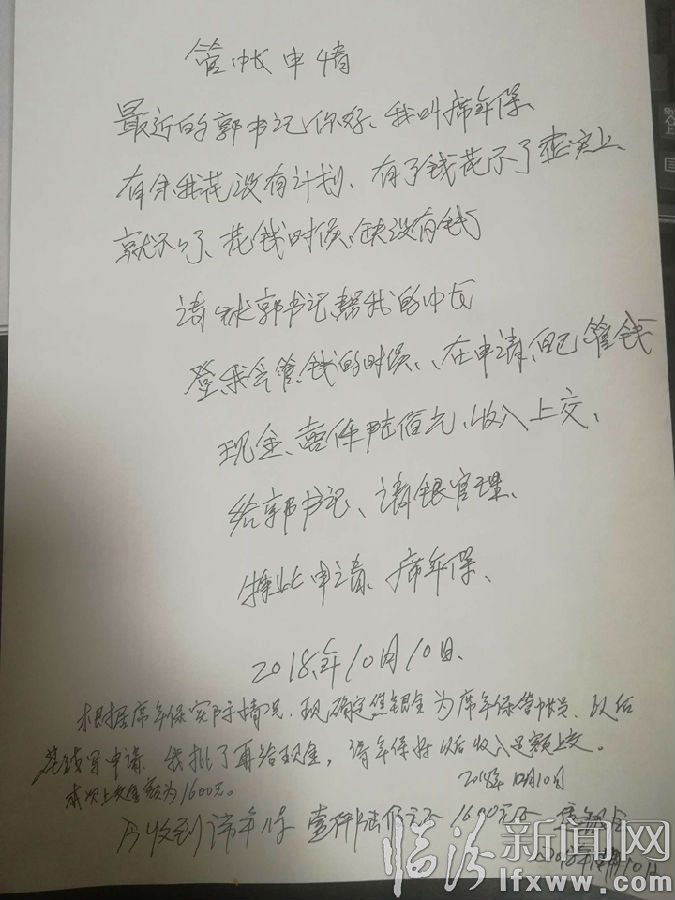 管帐申请
最近的郭书记你好、我叫席年保、
有余我花没有计划、有了钱花不了
就不了、花钱时候、缺没有钱
请求郭书记帮我
我会管钱的时候、、在申请自己管钱
现金、壹仟陆佰元、收入上交、
给郭书记、请银管理、
特此申请、席年保、
2018年10月10日、
根据席年保实际情况、现确定焦银金为席年保管帐员、以后
花钱写申请、我批了再给现金，请年保好以后收入足额上交。
本次上交金额为1600元。
2018年10月10日
今收到席年保壹仟陆佰元正 1600元正 焦银金
2018年10月10日
临汾新闻网
lfxww.com